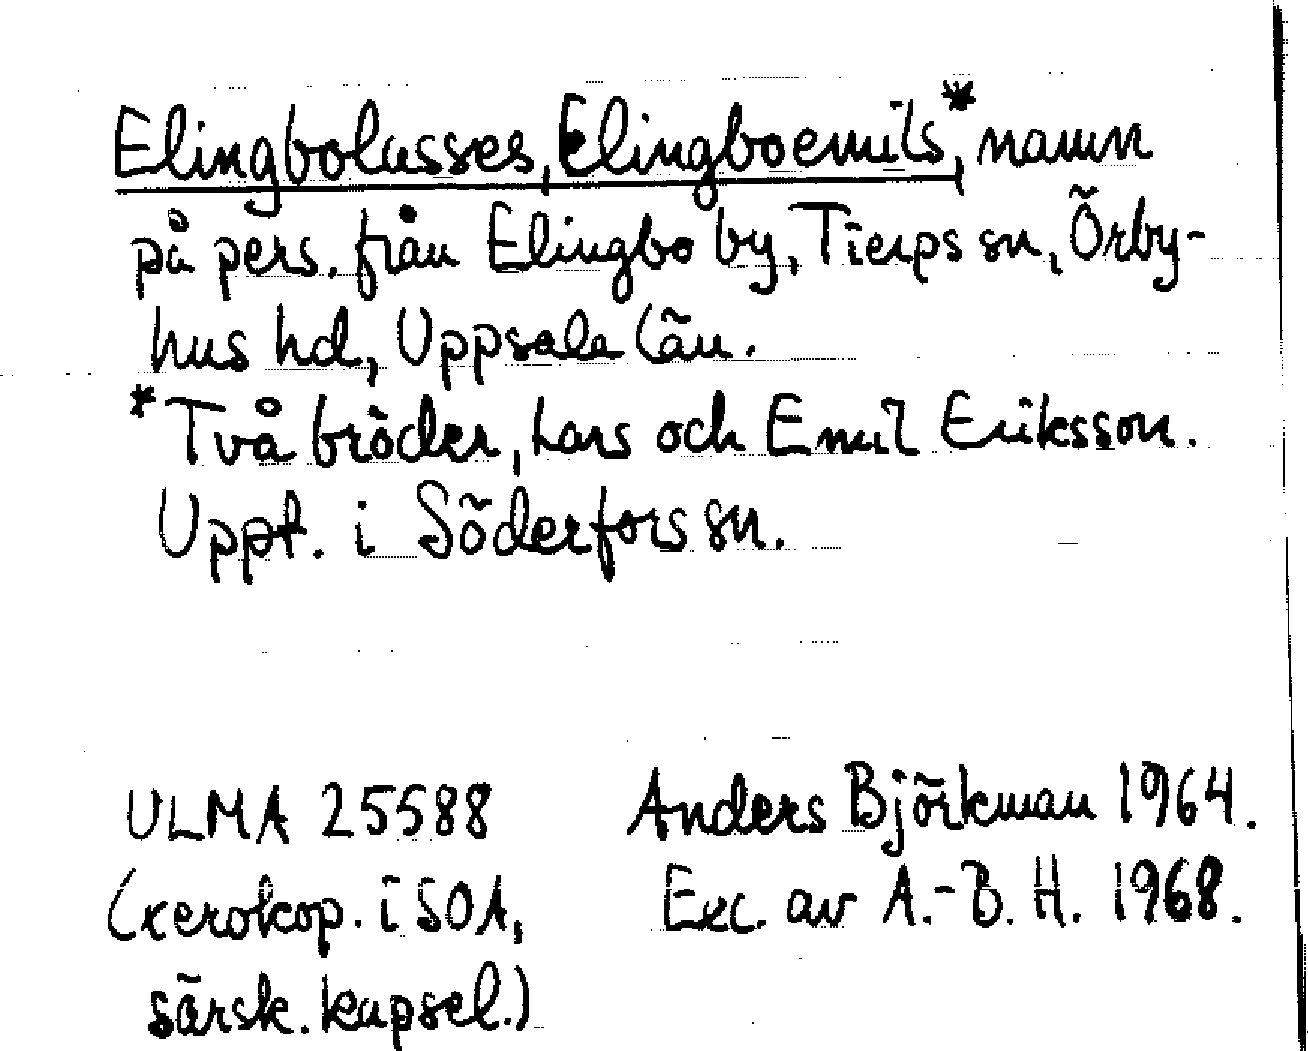 Elingbolasses, Elingboemils,* namn
på pers. från Elingbo by, Tierps sn, Örby-
hus hd, Uppsala län.
*Två bröder, Lars och Emil Eriksson.
Uppt. i Söderfors sn.
ULMA 25588
(xerokop. i SOA,
särsk. kapsel.)
Anders Björkman 1964.
Exc. av A.-B. H. 1968.